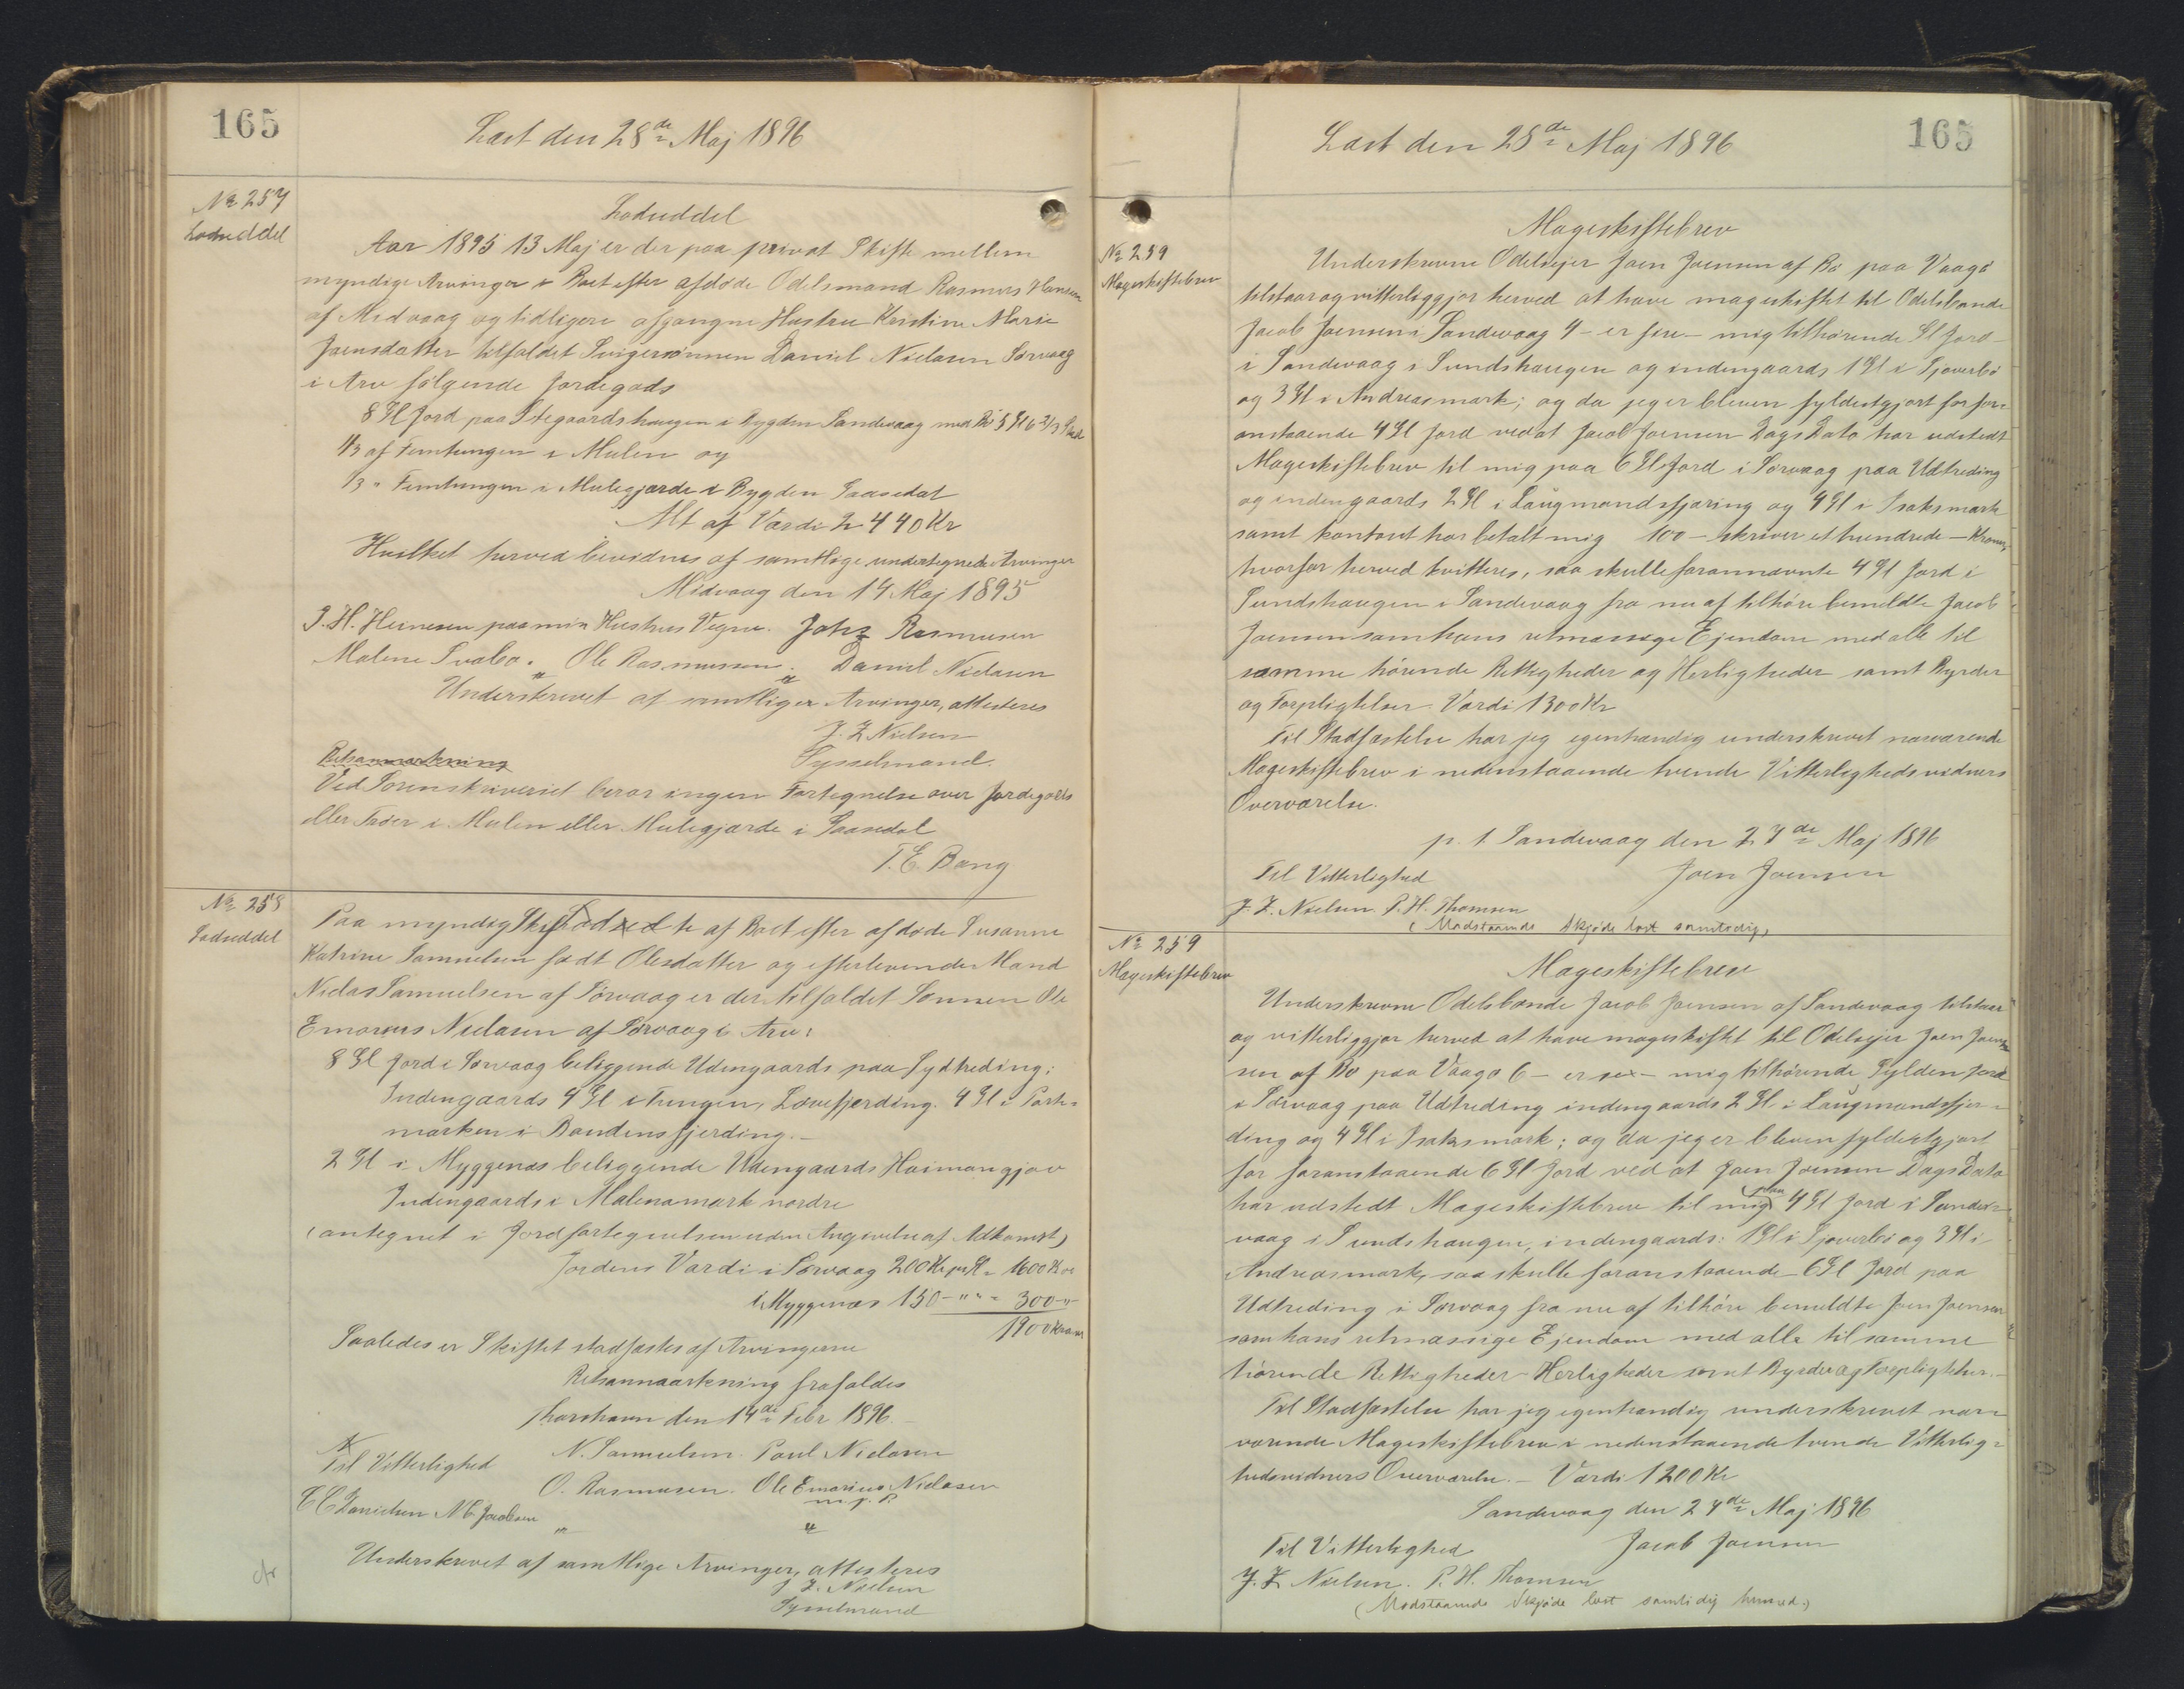 165
Læst den 28de Maj 1896
No 257
Lodseddel
Lodseddel
Aar 1895 13 Maj er der paa privat Skifte mellem
myndige Arvinger i Boet efter afdøde Odelsmand Rasmus Hansen
af Midvaag og tidligere afgangne Hustru Kristine Marie
Joensdatter tilfaldet Svigersønnen Daniel Nielasen Sørvaag
i Arv følgende Jordegods
8 Gl Jord paa Stegaardshaugen i Bygden Sandevaag med Bø 5 Gl 6 2/3 Skd
1/3 af Femtungen i Mulen og
1/3 " Femtungen i Mulegjærde i Bygden Saasedal
Alt af Værdi 2440 Kr
Hvilket herved bevidnes af samtlige undertegnede Arvinger
Midvaag den 14 Maj 1895
J. H. Heinesen paa min Hustrus Vegne. Johs Rasmusen
Malene Svabo. Ole Rasmussen. Daniel Nielasen
Underskrevet af samtliger Arvinger, attesteres
J. Z Nielsen
Sysselmand.
Retsanmærkning
Ved Sorenskriveriet beror ingen Fortegnelse over Jordegods
eller Fæer i Mulen eller Mulegjærde i Saasedal
T. E. Bang
No 258
Lodseddel
Paa myndig Skifte af Boet efter afdøde Susanne
Katrine Samuelsen født Olesdatter og efterlevende Mand
Nielas Samuelsen af Sørvaag er der tilfaldet Sønnen Ole
Emarius Nielasen af Sørvaag i Arv:
8 Gl Jord i Sørvaag beliggende Udengaards paa Sydtreding;
Indengaards 4 Gl i Tungen, Lovefjerding. 4 Gl i Port=
marken i Bondensfjerding.–
2 Gl i Myggenæs beliggende Udengaards Heimangjov
Indengaards i Malenamark nordre
(antegnet i Jordfortegnelsen uden Angivelse af Adkomst)
Jordens Værdi i Sørvaag 200 Kr pr Gl = 1600 Kr
i Myggenæs 150 – " " = 300 "
1900 Kroner
Saaledes er Skiftet stadfæstes af Arvingerne
Retsanmærkning frafaldes
Thorshavn den 14de Febr 1896.
Til Vitterlighed N. Samuelsen. Poul Nielasen
O. Rasmusen. Ole Emarius Nielasen
m. f. P.
C C Danielsen N C Jacobsen
Underskrevet af samtlige Arvinger, attesteres
J Z. Nielsen
Sysselmand
cfr
Læst den 28de Maj 1896
165
No 259
Mageskiftebrev
Mageskiftebrev
Underskrevne Odelsejer Joen Joensen af Bø paa Vaagø
tilstaar og vitterliggjør herved at have mageskiftet til Odelsbonde
Jacob Joensen i Sandevaag 4 – er fire – mig tilhørende Gl Jord
i Sandevaag i Sundshaugen og indengaards 1 Gl i Sjoverbø
og 3 Gl i Andreasmark; og da jeg er bleven fyldestgjort for for=
anstaaende 4 Gl Jord ved at Jacob Joensen Dags Dato har udstedt
Mageskiftebrev til mig paa 6 Gl Jord i Sørvaag paa Udtreding
og indengaards 2 Gl i Laugmandsfjæring og 4 Gl i Isaksmark
samt kontant har betalt mig 100 – skriver et hundrede – Kroner,
hvorfor herved kvitteres, saa skulle forannævnte 4 Gl Jord i
Sundshaugen i Sandevaag fra nu af tilhøre bemeldte Jacob
Joensen som hans retmæssige Ejendom med alle til
samme hørende Rettigheder og Herligheder samt Byrder
og Forpligtelser. Værdi 1300 Kr
Til Stadfæstelse har jeg egenhændig underskrevet nærværende
Mageskiftebrev i nedenstaaende tvende Vitterlighedsvidners
Overværelse.
p. t. Sandevaag den 27de Maj 1896
Til Vitterlighed Joen Joensen
J. Z. Nielsen. P. H. Thomsen
(Modstaaende Skjøde læst samtidig)
No 259
Mageskiftebrev
Mageskiftebrev
Underskrevne Odelsbonde Jacob Joensen af Sandevaag tilstaar
og vitterliggjør herved at have mageskiftet til Odelsejer Joen Joen=
sen af Bø paa Vaagø 6 – er sex – mig tilhørende Gylden Jord
i Sørvaag paa Udtreding indengaards 2 Gl i Laugmandsfjer=
ding og 4 Gl i Isaksmark; og da jeg er bleven fyldestgjort
for foranstaaende 6 Gl Jord ved at Joen Joensen Dags Dato
har udstedt Mageskiftebrev til mig paa 4 Gl Jord i Sande=
vaag i Sundshaugen, indengaards: 1 Gl i Sjoverbø og 3 Gl i
Andreasmark, saa skulle foranstaaende 6 Gl Jord paa
Udtreding i Sørvaag fra nu af tilhøre bemeldte Joen Joensen
som hans retmæssige Ejendom med alle til samme
hørende Rettigheder – Herligheder samt Byrder og Forpligtelser.–
Til Stadfæstelse har jeg egenhændig underskrevet nær=
værende Mageskiftebrev i nedenstaaende tvende Vitterlig=
hedsvidners Overværelse. – Værdi 1200 Kr
Sandevaag den 27de Maj 1896
Til Vitterlighed Jacob Joensen
J. Z Nielsen. P. H. Thomsen
(Modstaaende Skjøde læst samtidig hermed.)